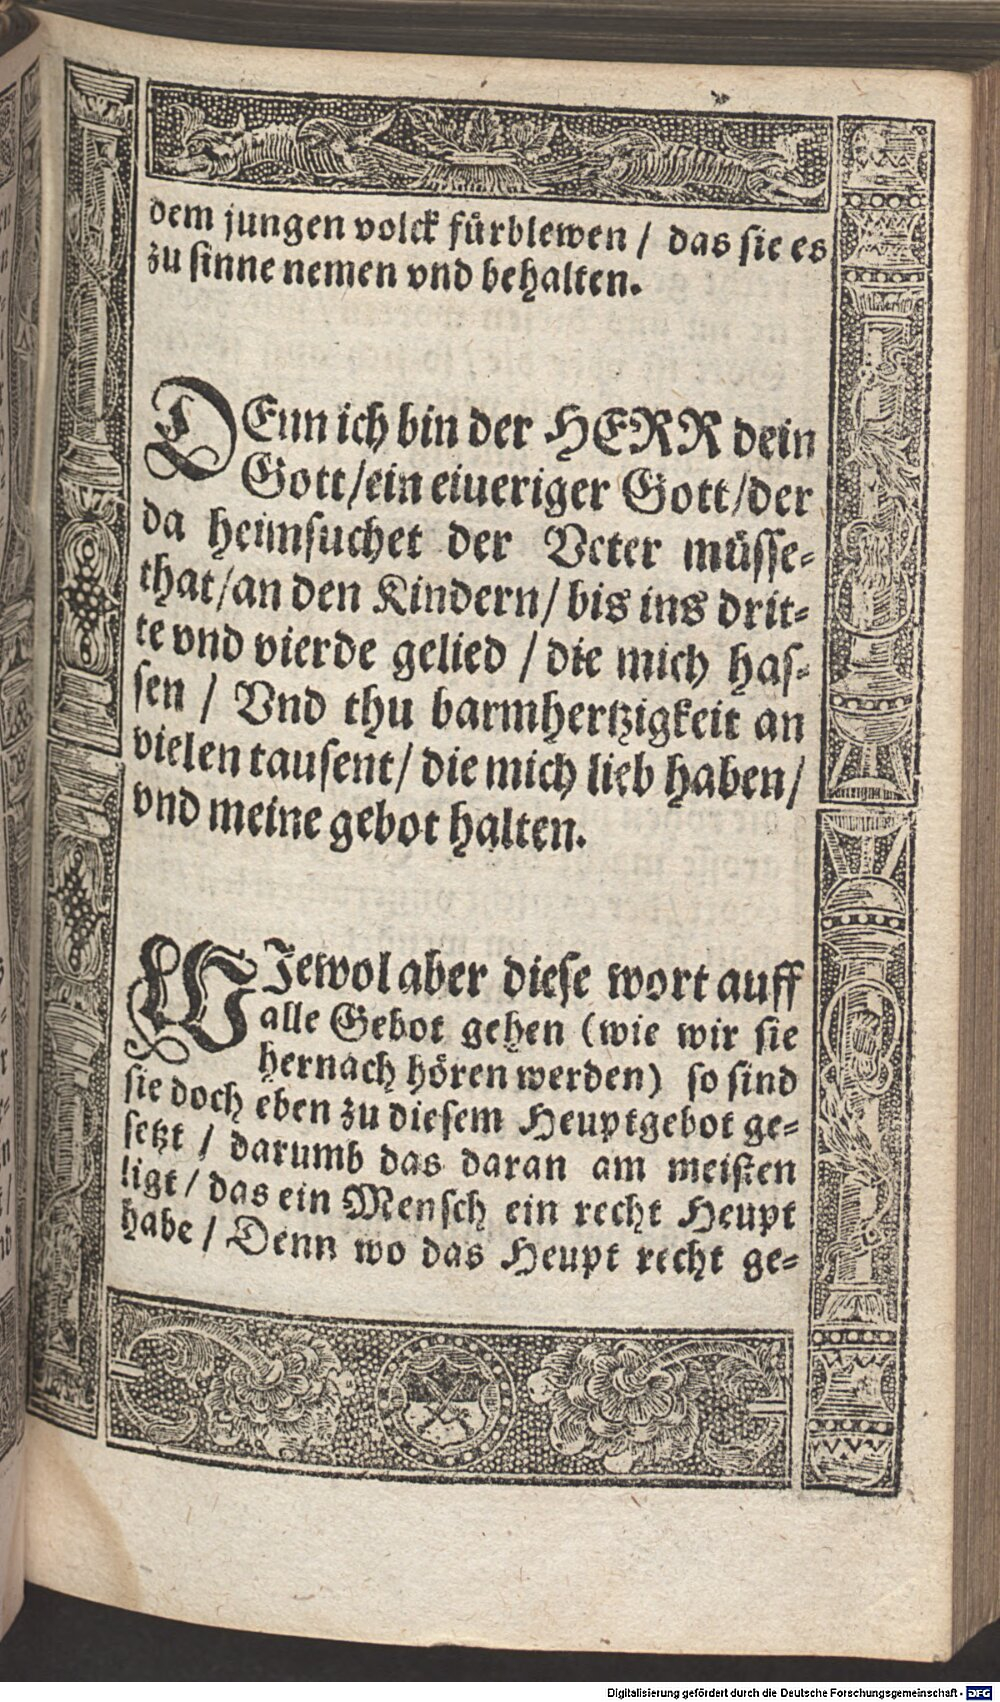 dem jungen volck fürblewen / das sie es
zu sinne nemen vnd behalten.
DEnn ich bin der HERR dein
Gott/ein eiueriger Gott/der
da heimsuchet der Veter müsse-
that/an den Kindern/ bis ins drit-
te vnd vierde gelied / die mich has-
sen / Vnd thu barmhertzigkeit an
vielen tausent/ die mich lieb haben/
vnd meine gebot halten.
WIewol aber diese wort auff
alle Gebot gehen (wie wir sie
hernach hören werden) so sind
sie doch eben zu diesem Heuptgebot ge-
setzt / darumb das daran am meisten
ligt / das ein Mensch ein recht Heupt
habe / Denn wo das Heupt recht ge-
Digitalisierung gefördert durch die Deutsche Forschungsgemeinschaft - DFG